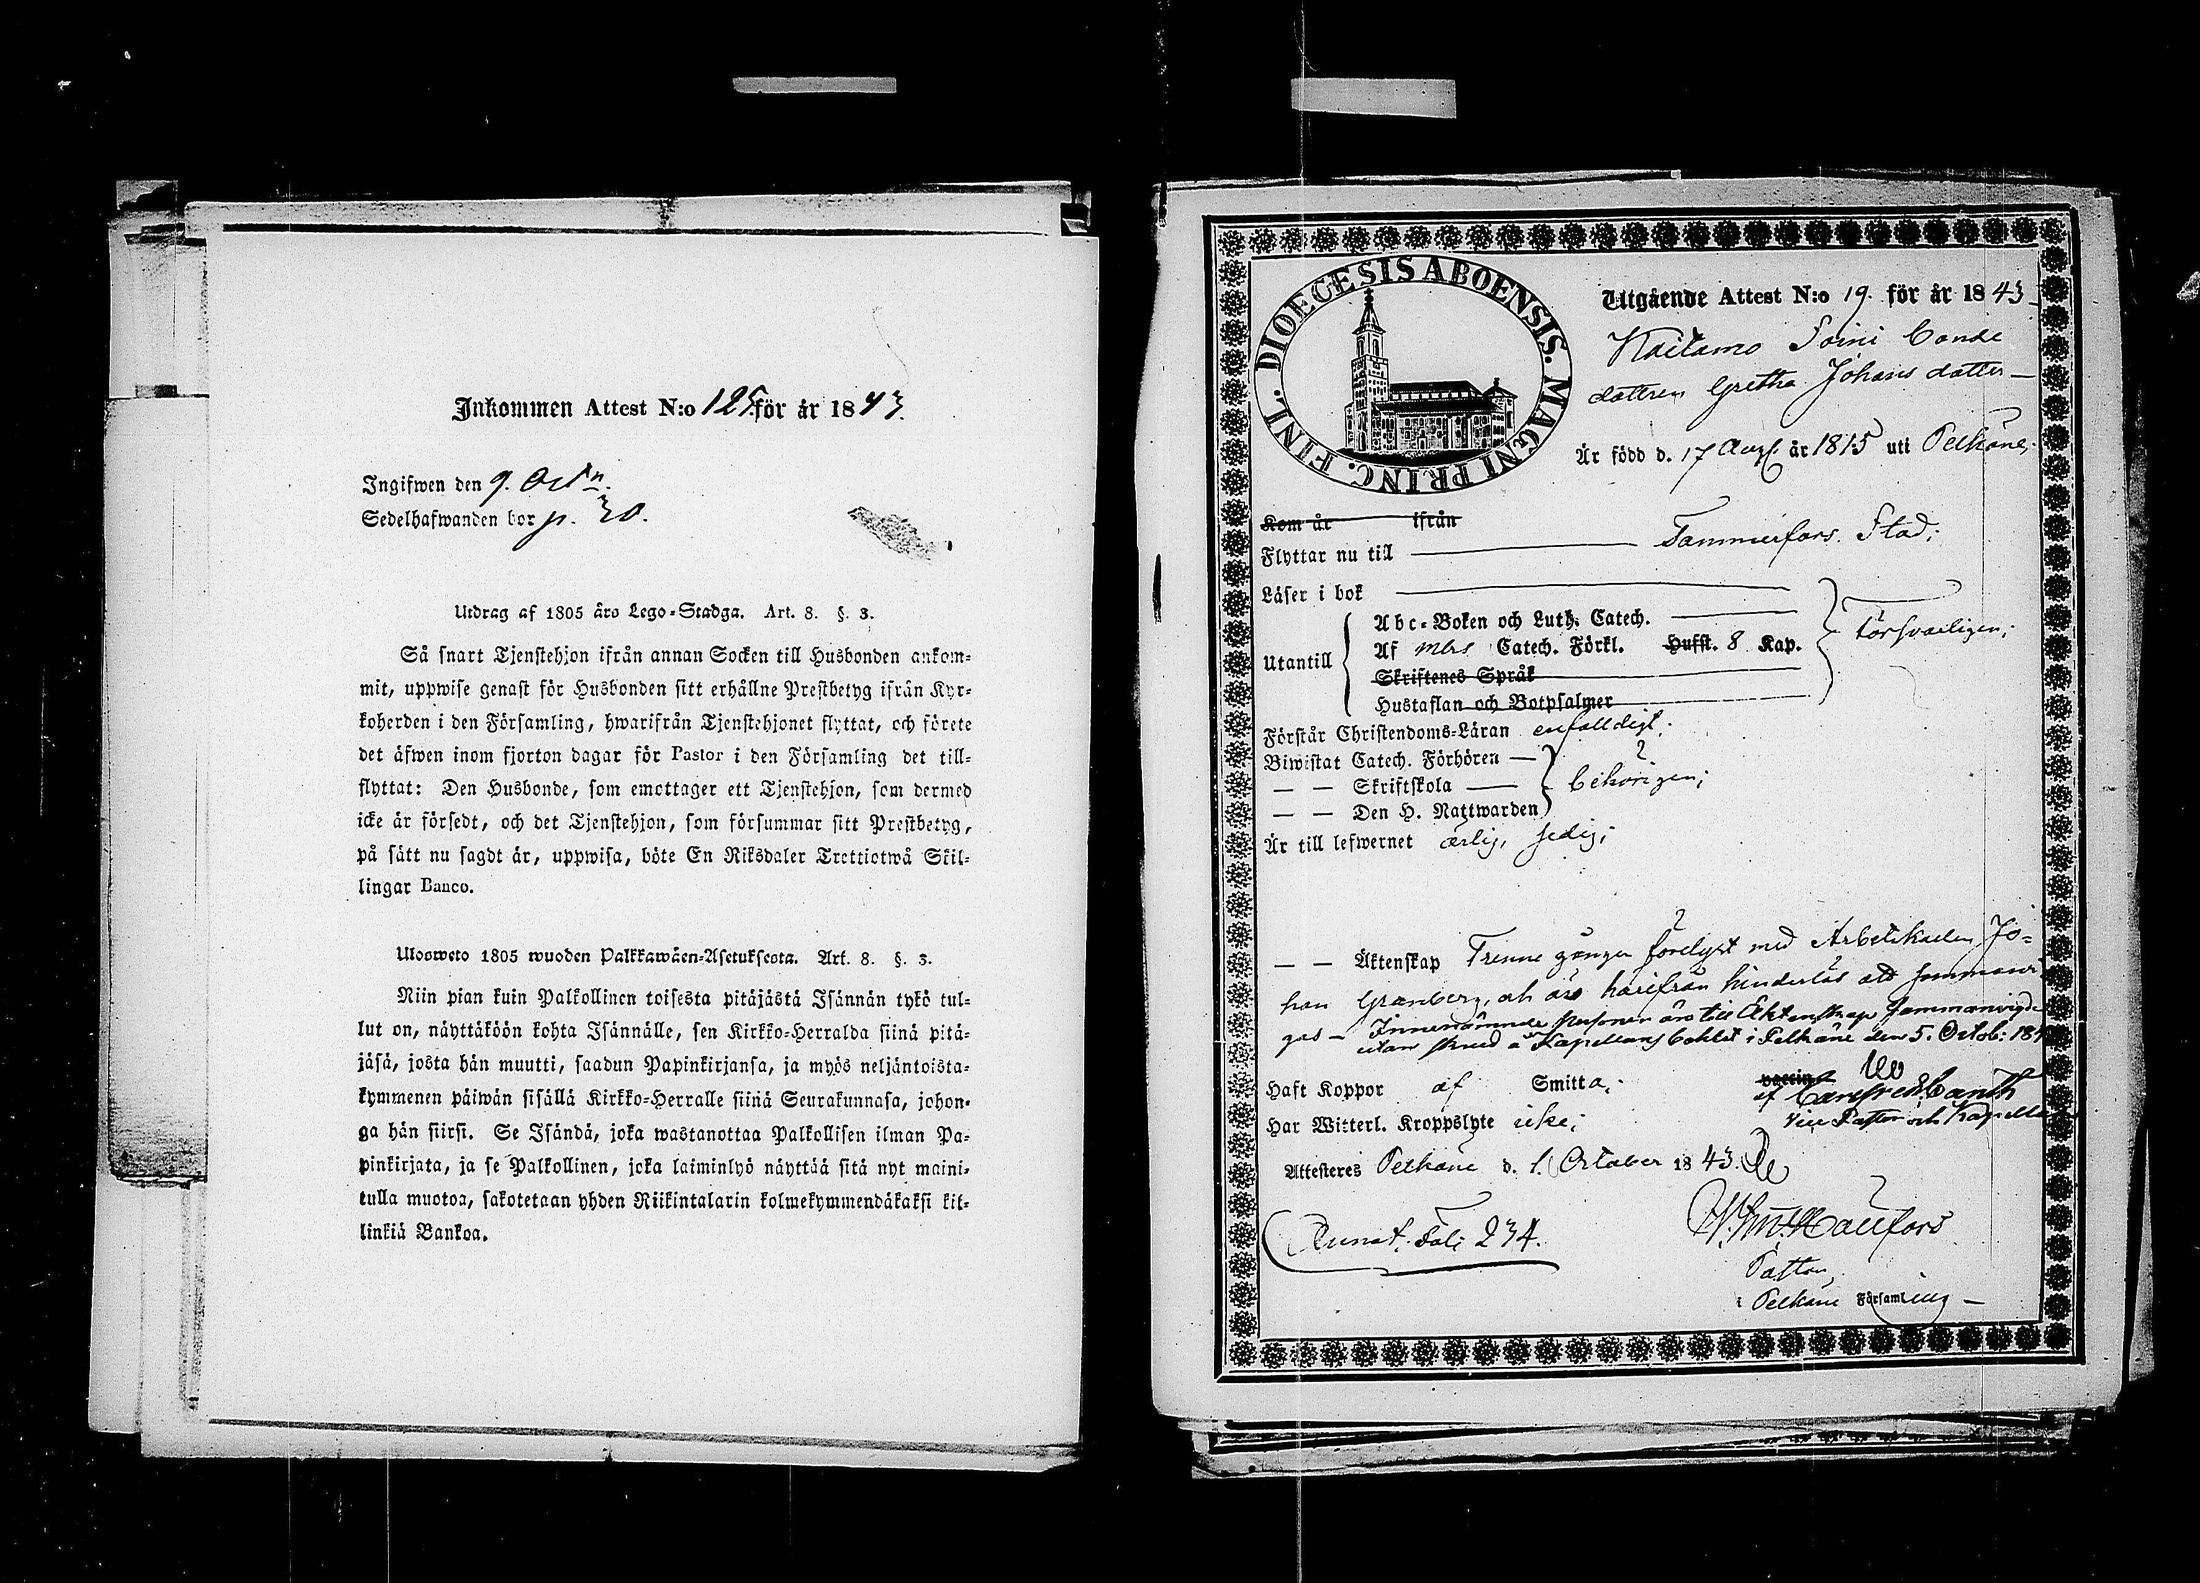 Inkommen Attest N:o 125 för år 1843.
Ingifwen den 9. Oct:
Sedelhafwanden bor p. 30.
Utdrag af 1805 års Lego-Stadga. Art. 8. §. 3.
Så snart Tjenstehjon ifrån annan Socken till Husbonden ankom-
mit, uppwise genast för Husbonden sitt erhållne Prestbetyg ifrån Kyr-
koherden i den Församling, hwarifrån Tjenstehjonet flyttat, och förete
det äfwen inom fjorton dagar för Pastor i den Församling det till-
flyttat: Den Husbonde, som emottager ett Tjenstehjon, som dermed
icke är försedt, och det Tjenstehjon, som försummar sitt Prestbetyg,
på sätt nu sagdt är, uppwisa, böte En Riksdaler Trettiotwå Skil-
lingar Banco.
Ulosweto 1805 wuoden Palkkawäen-Asetuksesta. Art. 8. §. 3.
Niin pian kuin Palkollinen toisesta pitäjästä Isännän tykö tul-
lut on, näyttäköön kohta Isännälle, sen Kirkko-Herralda siinä pitä-
jäsä, josta hän muutti, saadun Papinkirjansa, ja myös neljäntoista-
kymmenen päiwän sisällä Kirkko-Herralle siinä Seurakunnasa, johon-
ga hän siirsi. Se Isändä, joka wastanottaa Palkollisen ilman Pa-
pinkirjata, ja se Palkollinen, joka laiminlyö näyttää sitä nyt maini-
tulla muotoa, sakotetaan yhden Riikintalarin kolmekymmendäkaksi kil-
linkiä Bankoa.
DIOECESIS ABOENSIS. MAGNI PRINC. FINL.
Utgående Attest N:o 19. för år 1843
Kaitamo Soini Bonde
dottren Gretha Johans dotter
Är född d. 17 Aug. år 1815 uti Pelkäne;
Kom år ifrån
Flyttar nu till Tammerfors Stad;
Läser i bok
Abc-Boken och Luth. Catech.
Utantill Af mbs Catech. Förkl. Hufst. 8 Kap. försvarligen;
Skriftenes Språk
Hustaflan och Botpsalmer
Förstår Christendoms-Läran enfaldigt;
Biwistat Catech. Förhören —
— — Skriftskola — behörigen;
— — Den H. Nattwarden
Är till lefwernet ärlig, sedig;
— — Äktenskap Trenne gånger förelyst med Arbetskarlen Jo-
han Granberg, och äro härifrån hinderlös att sammanvi-
gas — Innenämnde personer äro till Äktenskap sammanvigde
utan skrud å Kapellans bohlet i Pelkäne den 5. Octob: 184
Haft Koppor af Smitta; vaccin
af
Har Witterl. Kroppslyte icke; Vice Pastor och Kapellan
Attesteres Pelkäne d. 1. October 1843.
Annot. Fol: 234.
Pastor
i Pelkäne Församling